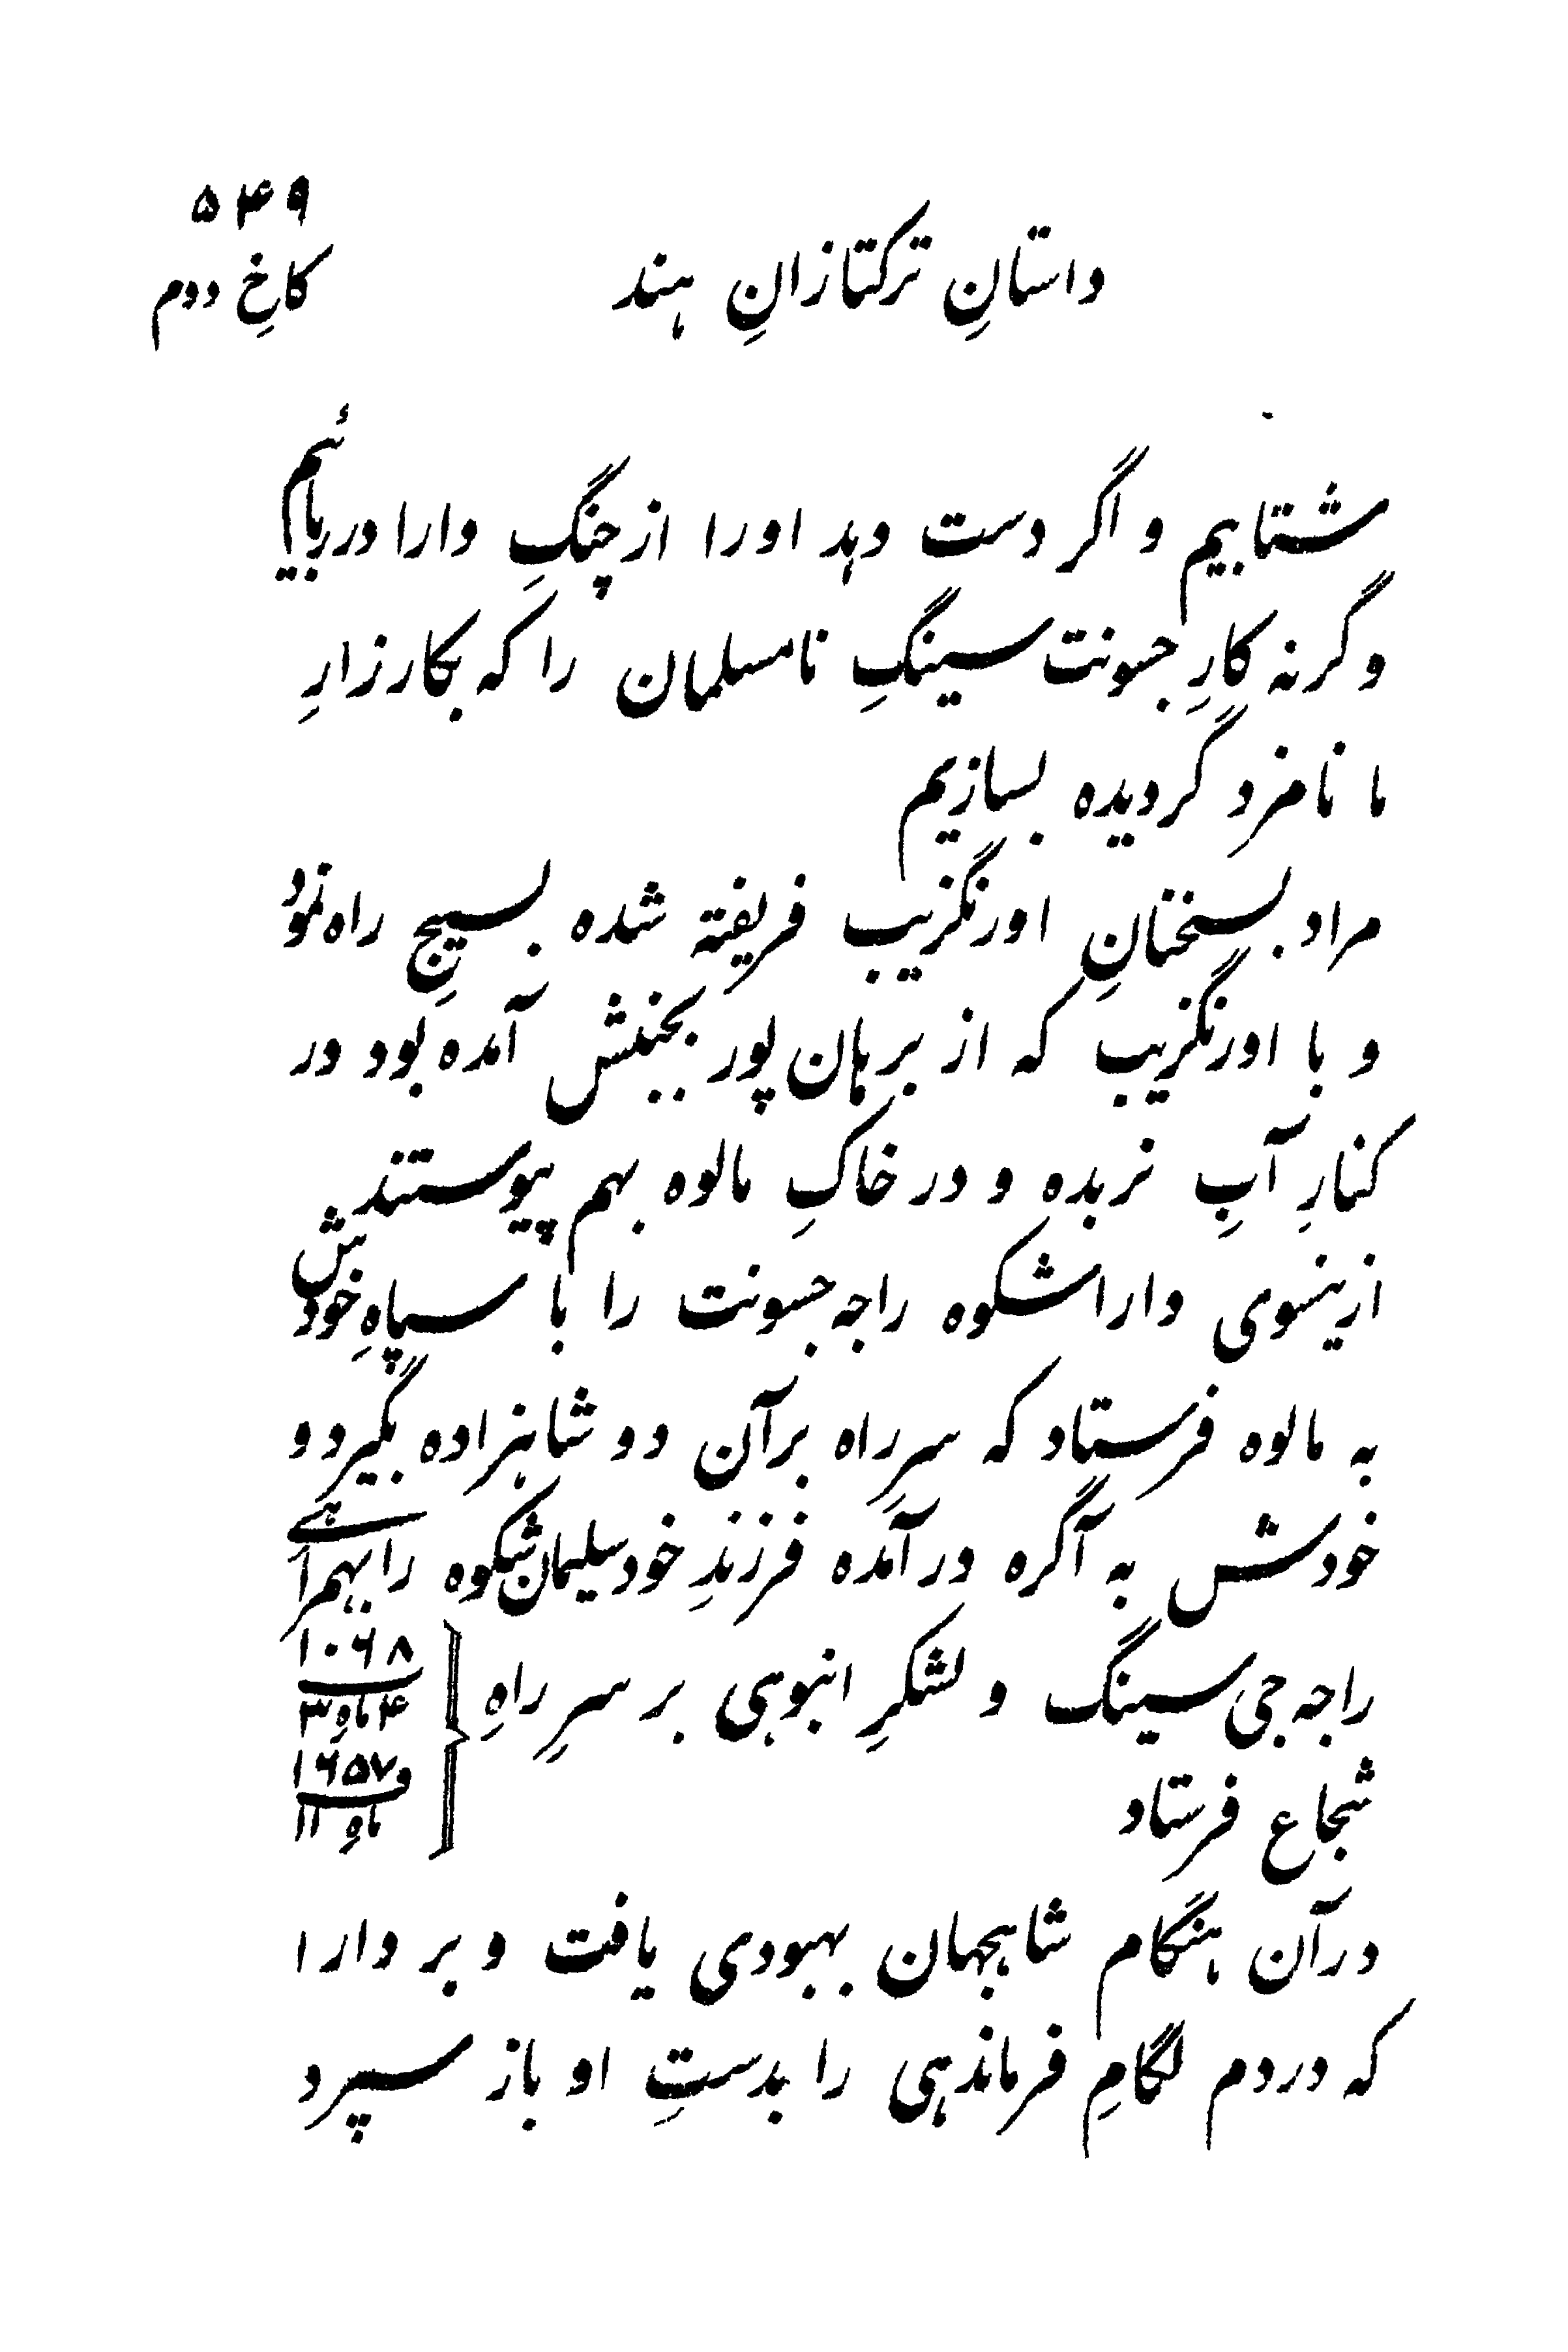 ۵۴۹
داستانِ ترکتازانِ هند
کاخِ دوم
شتابیم و اگر دست دهد او را از چنگِ دارا درربائیم
وگرنه کارِ جسونت سینگِ نامسلمان را که بکارزارِ
ما نامزد گردیده بسازیم
مراد بسخنانِ اورنگزیب فریفته شده بسیچِ راه نمود
و با اورنگزیب که از برهان پور بجنبش آمده بود در
کنارِ آبِ نربده و در خاکِ مالوه بهم پیوستند
ازینسوی داراشکوه راجه جسونت را با سپاهِ خودش
به مالوه فرستاد که سرِ راه برآن دو شاهزاده بگیرد و
خودش به آگره درآمده فرزندِ خود سلیمان شکوه را بهمراهے
راجه جی سینگ و لشکرِ انبوهی بر سرِ راهِ
شجاع فرستاد
۱۰۶۸
۴ ماهِ ۳
و ۱۶۵۷
ماهِ ۱۱
درآن هنگام شاهجهان بهبودی یافت و بر دارا
که دردم لگامِ فرماندهی را بدستِ او باز سپرد